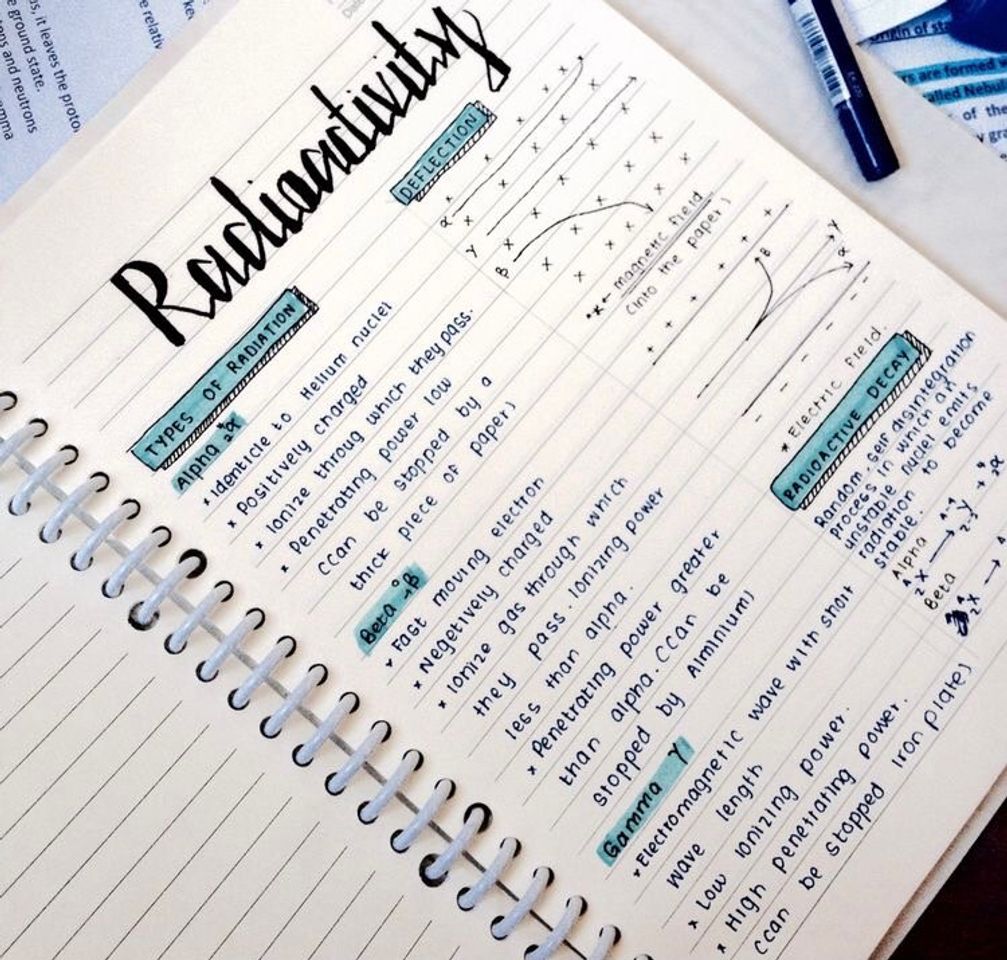 Radioactivity
TYPES OF RADIATION
Alpha ⁴₂α
* Identicle to Helium nuclei
* Positively charged
* Ionize throug which they pass.
* Penetrating power low
(Can be stopped by a
thick piece of paper)
Beta ⁰₋₁β
* Fast moving electron
* Negetively charged
* Ionize gas through which
they pass. Ionizing power
less than alpha.
* Penetrating power greater
than alpha. (Can be
stopped by Alminium)
Gamma γ
* Electromagnetic wave with short
wave length
* Low ionizing power.
* High penetrating power.
(Can be stopped iron plate)
DEFLECTION
α
γ
β
* x ← magnetic field
(into the paper)
β
γ
α
* Electric field.
RADIOACTIVE DECAY
Random, self disintegration
process in which an
unstable nuclei emits
radiation to become
stable.
Alpha
ᴬ₂X → ᴬ⁻⁴₂₋₂Y + ⁴₂α
Beta
ᴬ₂X →
it leaves the proto
ground state.
and neutrons
amma
relativ
Origin of sta
are formed
called Nebu
of the
gra